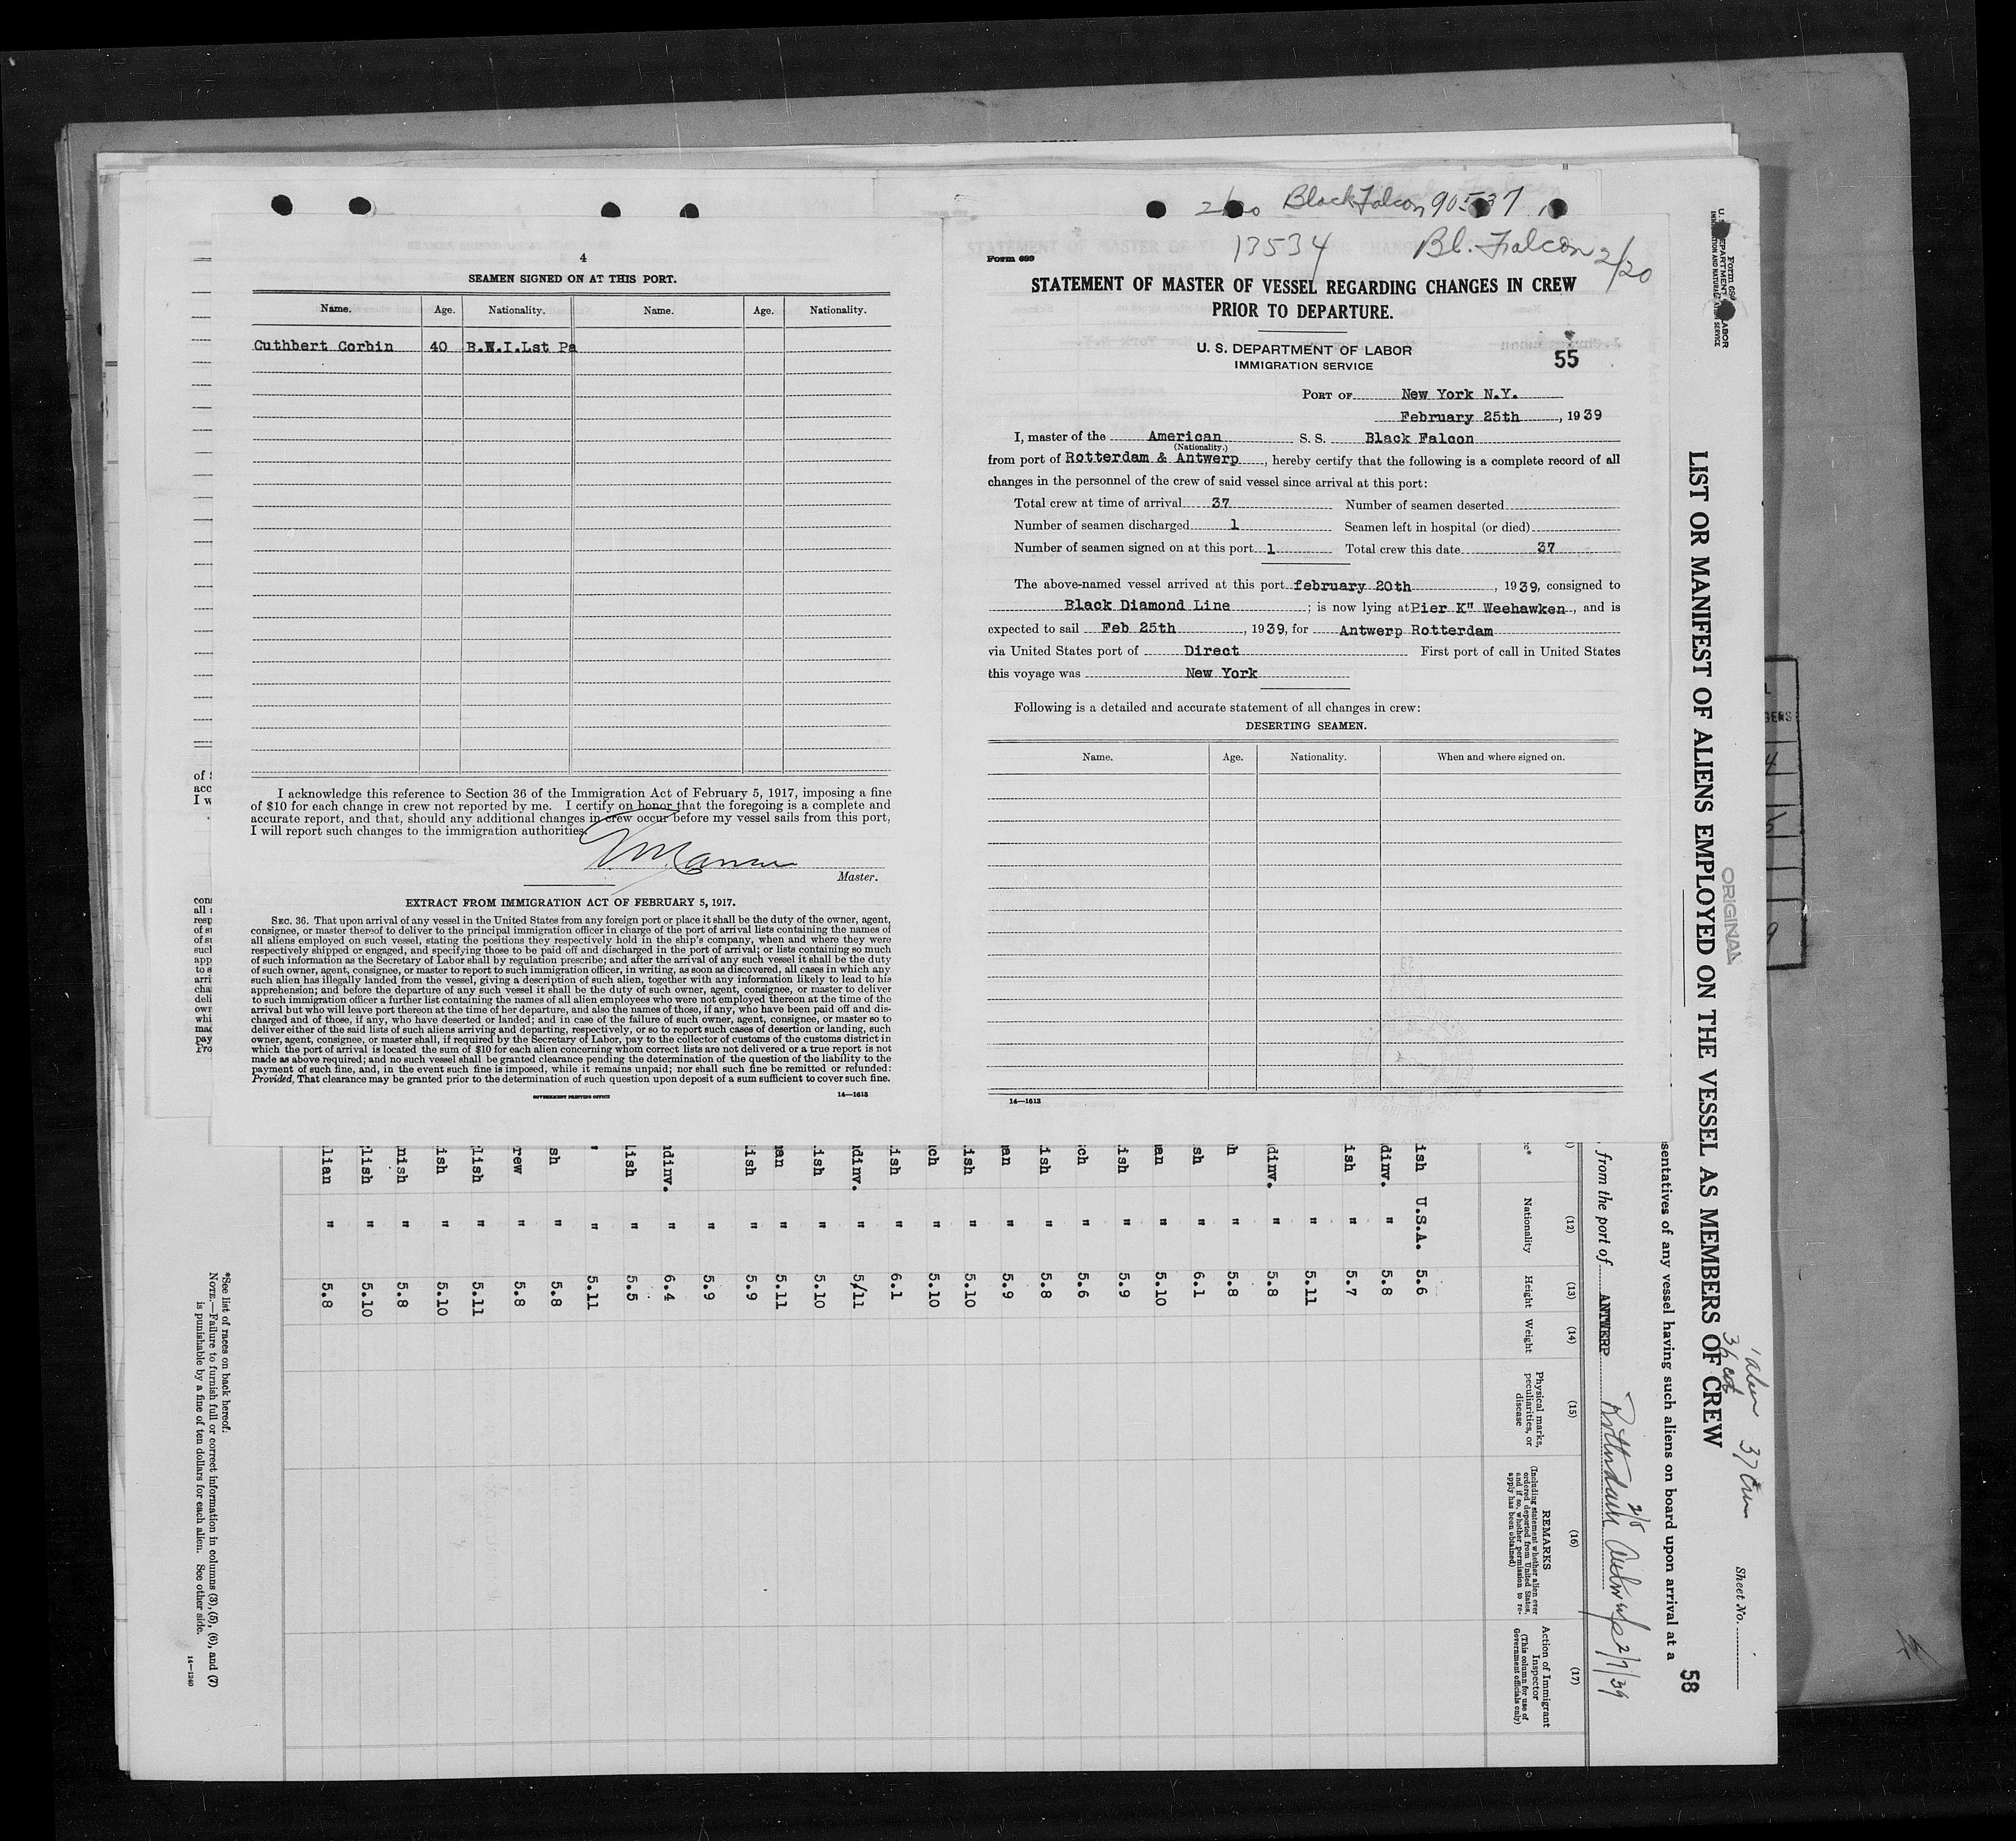 4
SEAMEN SIGNED ON AT THIS PORT.
Name. Age. Nationality. Name. Age. Nationality.
Cuthbert Corbin 40 B.W.I.Lst Pa
I acknowledge this reference to Section 36 of the Immigration Act of February 5, 1917, imposing a fine
of $10 for each change in crew not reported by me. I certify on honor that the foregoing is a complete and
accurate report, and that, should any additional changes in crew occur before my vessel sails from this port,
I will report such changes to the immigration authorities.
Master.
EXTRACT FROM IMMIGRATION ACT OF FEBRUARY 5, 1917.
SEC. 36. That upon arrival of any vessel in the United States from any foreign port or place it shall be the duty of the owner, agent,
consignee, or master thereof to deliver to the principal immigration officer in charge of the port of arrival lists containing the names of
all aliens employed on such vessel, stating the positions they respectively hold in the ship's company, when and where they were
respectively shipped or engaged, and specifying those to be paid off and discharged in the port of arrival; or lists containing so much
of such information as the Secretary of Labor shall by regulation prescribe; and after the arrival of any such vessel it shall be the duty
of such owner, agent, consignee, or master to report to such immigration officer, in writing, as soon as discovered, all cases in which any
such alien has illegally landed from the vessel, giving a description of such alien, together with any information likely to lead to his
apprehension; and before the departure of any such vessel it shall be the duty of such owner, agent, consignee, or master to deliver
to such immigration officer a further list containing the names of all alien employees who were not employed thereon at the time of the
arrival but who will leave port thereon at the time of her departure, and also the names of those, if any, who have been paid off and dis-
charged and of those, if any, who have deserted or landed; and in case of the failure of such owner, agent, consignee, or master so to
deliver either of the said lists of such aliens arriving and departing, respectively, or so to report such cases of desertion or landing, such
owner, agent, consignee, or master shall, if required by the Secretary of Labor, pay to the collector of customs of the customs district in
which the port of arrival is located the sum of $10 for each alien concerning whom correct lists are not delivered or a true report is not
made as above required; and no such vessel shall be granted clearance pending the determination of the question of the liability to the
payment of such fine, and, in the event such fine is imposed, while it remains unpaid; nor shall such fine be remitted or refunded:
Provided, That clearance may be granted prior to the determination of such question upon deposit of a sum sufficient to cover such fine.
GOVERNMENT PRINTING OFFICE 14—1613
Black Falcon 90537
13534 Bl. Falcon 2/20
Form 689
STATEMENT OF MASTER OF VESSEL REGARDING CHANGES IN CREW
PRIOR TO DEPARTURE.
U. S. DEPARTMENT OF LABOR
IMMIGRATION SERVICE
55
PORT OF New York N.Y.
February 25th, 1939
I, master of the American S. S. Black Falcon
(Nationality.)
from port of Rotterdam & Antwerp, hereby certify that the following is a complete record of all
changes in the personnel of the crew of said vessel since arrival at this port:
Total crew at time of arrival 37 Number of seamen deserted
Number of seamen discharged 1 Seamen left in hospital (or died)
Number of seamen signed on at this port 1 Total crew this date 37
The above-named vessel arrived at this port february 20th, 1939, consigned to
Black Diamond Line; is now lying at Pier K" Weehawken, and is
expected to sail Feb 25th, 1939, for Antwerp Rotterdam
via United States port of Direct First port of call in United States
this voyage was New York
Following is a detailed and accurate statement of all changes in crew:
DESERTING SEAMEN.
Name. Age. Nationality. When and where signed on.
14—1613
Form 689
ORIGINAL
LIST OR MANIFEST OF ALIENS EMPLOYED ON THE VESSEL AS MEMBERS OF CREW
Sheet No.
37 Crew
58
sentatives of any vessel having such aliens on board upon arrival at a
from the port of ANTWERP Rotterdam 2/5 Antwerp 2/7/39
(12) (13) (14) (15) (16) (17)
Nationality Height Weight
Physical marks, peculiarities, or disease
REMARKS
(Including statement whether alien ever ordered deported from United States, and if so, whether permission to re-apply has been obtained)
Action of Immigrant Inspector
(This column for use of Government officials only)
ish U.S.A. 5.6
dinv. " 5.8
ish " 5.7
" 5.11
dinv. " 5.8
h " 5.8
sh " 6.1
an " 5.10
ish " 5.9
ch " 5.6
ish " 5.8
an " 5.9
ish " 5.10
ch " 5.10
ish " 6.1
dinv. " 5/11
ish " 5.10
an " 5.11
lish " 5.9
" 5.9
ndinv. " 6.4
lish " 5.5
" " 5.11
sh " 5.8
rew " 5.8
lish " 5.11
ish " 5.10
nish " 5.8
lish " 5.10
lian " 5.8
*See list of races on back hereof.
NOTE.—Failure to furnish full or correct information in columns (3), (5), (6), and (7)
is punishable by a fine of ten dollars for each alien. See other side.
14—1240